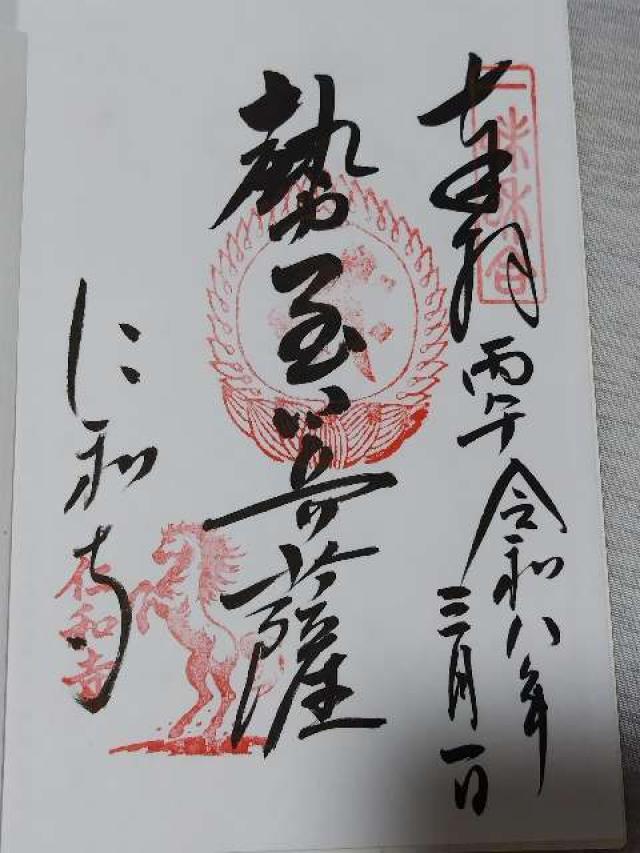 奉拝
丙午 令和八年
三月一日
勢至菩薩
仁和寺
仁和寺